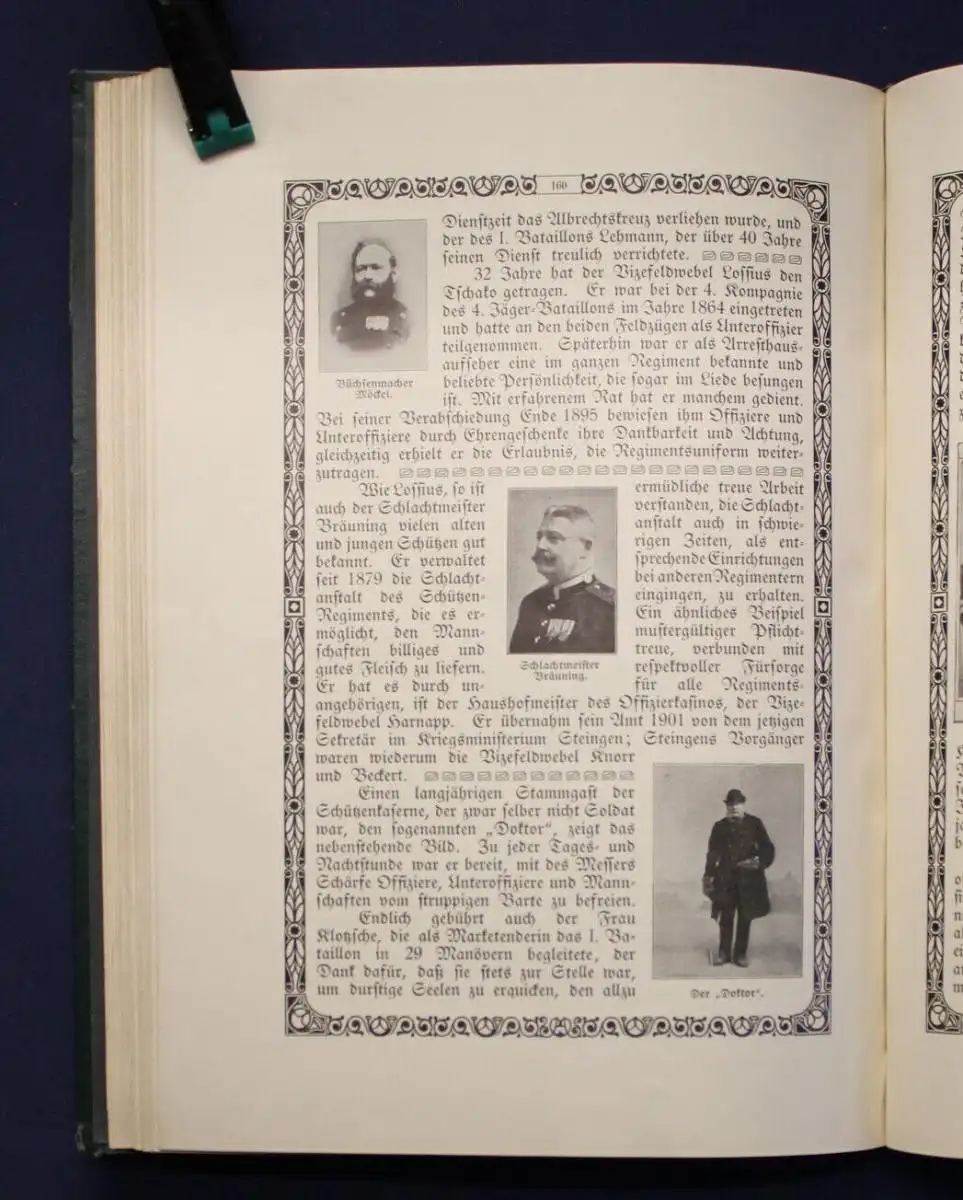 160
Dienstzeit das Albrechtskreuz verliehen wurde, und
der des I. Bataillons Lehmann, der über 40 Jahre
seinen Dienst treulich verrichtete.
32 Jahre hat der Vizefeldwebel Lossius den
Tschako getragen. Er war bei der 4. Kompagnie
des 4. Jäger-Bataillons im Jahre 1864 eingetreten
und hatte an den beiden Feldzügen als Unteroffizier
teilgenommen. Späterhin war er als Arresthaus-
aufseher eine im ganzen Regiment bekannte und
beliebte Persönlichkeit, die sogar im Liede besungen
ist. Mit erfahrenem Rat hat er manchem gedient.
Büchsenmacher
Möckel.
Bei seiner Verabschiedung Ende 1895 bewiesen ihm Offiziere und
Unteroffiziere durch Ehrengeschenke ihre Dankbarkeit und Achtung,
gleichzeitig erhielt er die Erlaubnis, die Regimentsuniform weiter-
zutragen.
Wie Lossius, so ist
auch der Schlachtmeister
Bräuning vielen alten
und jungen Schützen gut
bekannt. Er verwaltet
seit 1879 die Schlacht-
anstalt des Schützen-
Regiments, die es er-
möglicht, den Mann-
schaften billiges und
gutes Fleisch zu liefern.
Er hat es durch un-
Schlachtmeister
Bräuning.
ermüdliche treue Arbeit
verstanden, die Schlacht-
anstalt auch in schwie-
rigen Zeiten, als ent-
sprechende Einrichtungen
bei anderen Regimentern
eingingen, zu erhalten.
Ein ähnliches Beispiel
mustergültiger Pflicht-
treue, verbunden mit
respektvoller Fürsorge
für alle Regiments-
angehörigen, ist der Haushofmeister des Offizierkasinos, der Vize-
feldwebel Harnapp. Er übernahm sein Amt 1901 von dem jetzigen
Sekretär im Kriegsministerium Steingen; Steingens Vorgänger
waren wiederum die Vizefeldwebel Knorr
und Beckert.
Einen langjährigen Stammgast der
Schützenkaserne, der zwar selber nicht Soldat
war, den sogenannten „Doktor“, zeigt das
nebenstehende Bild. Zu jeder Tages- und
Nachtstunde war er bereit, mit des Messers
Schärfe Offiziere, Unteroffiziere und Mann-
schaften vom struppigen Barte zu befreien.
Endlich gebührt auch der Frau
Klotzsche, die als Marketenderin das I. Ba-
taillon in 29 Manövern begleitete, der
Dank dafür, daß sie stets zur Stelle war,
um durstige Seelen zu erquicken, den allzu
Der „Doktor“.